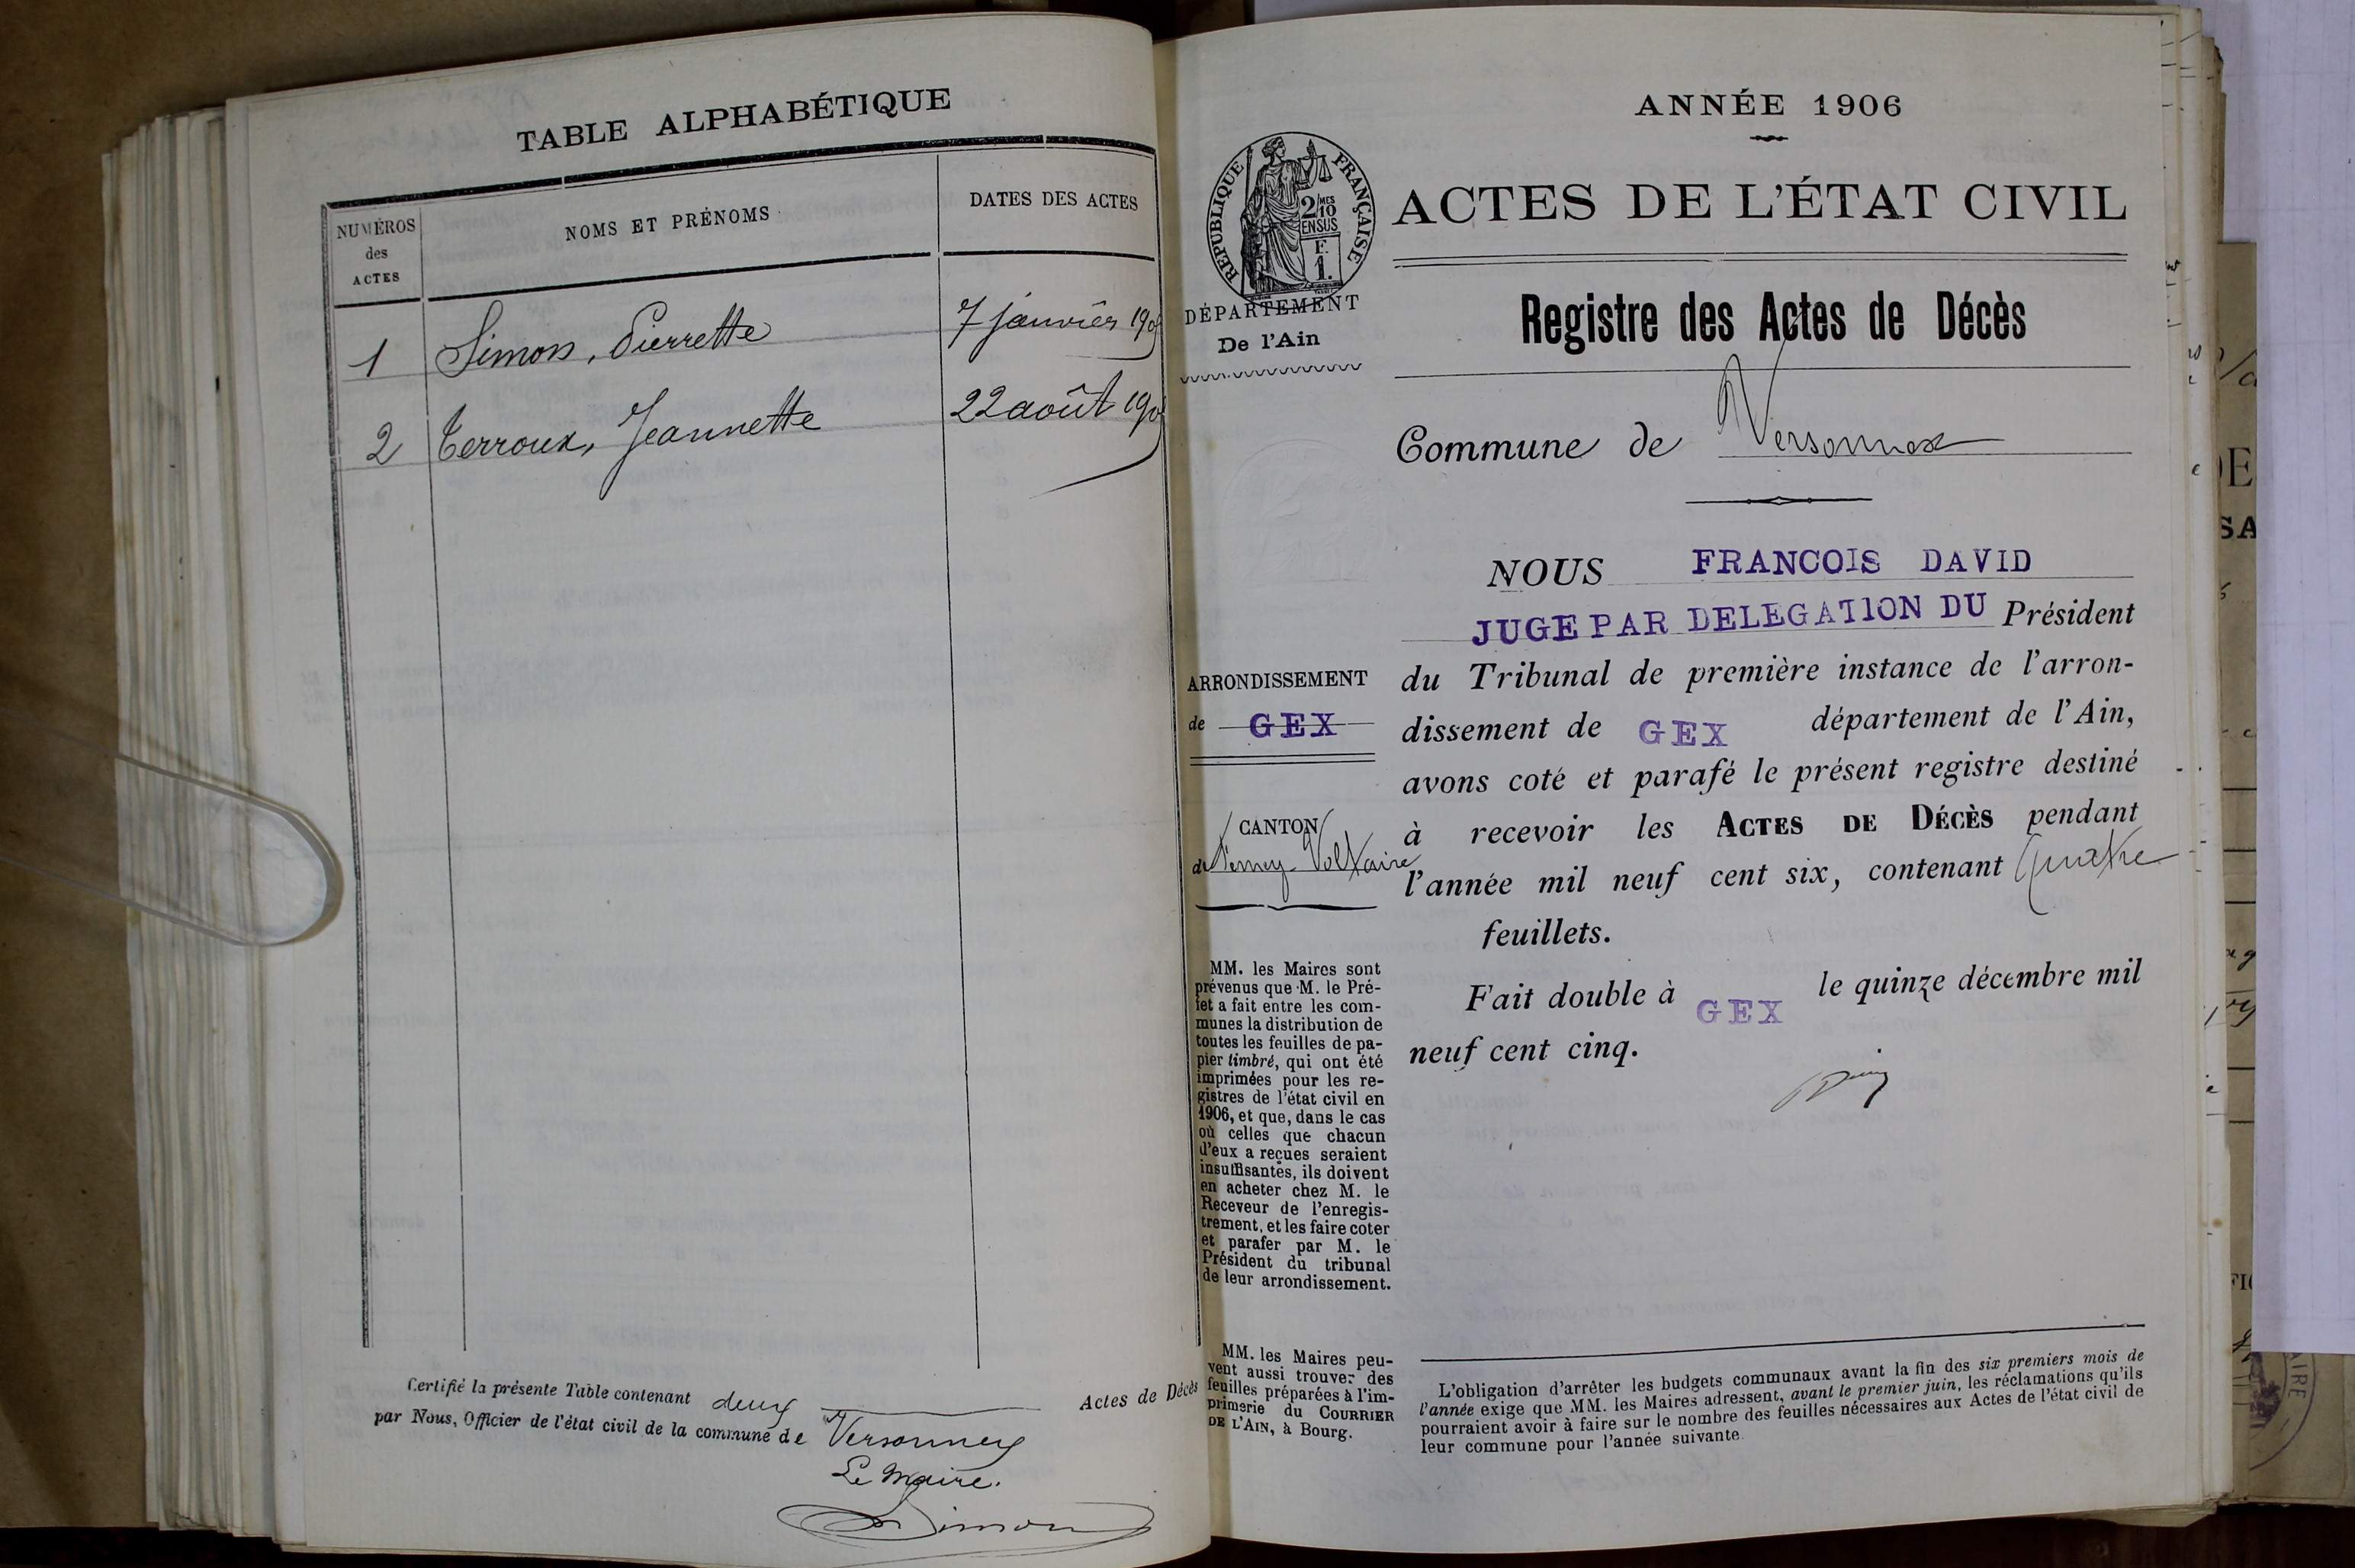 TABLE ALPHABÉTIQUE
NUMÉROS
des
ACTES
NOMS ET PRÉNOMS
DATES DES ACTES
1 Simon, Pierrette 7 janvier 190
2 Terroux, Jeannette 22 août 190
Certifié la présente Table contenant deux Actes de Décès
par Nous, Officier de l'état civil de la commune de Versonnex
Le Maire.
Simon
ANNÉE 1906
RÉPUBLIQUE FRANÇAISE
2/MES
10
EN SUS
F.
1.
ACTES DE L'ÉTAT CIVIL
DÉPARTEMENT
De l'Ain
Registre des Actes de Décès
Commune de Versonnex
NOUS FRANCOIS DAVID
JUGE PAR DELEGATION DU Président
du Tribunal de première instance de l'arron-
dissement de GEX département de l'Ain,
avons coté et parafé le présent registre destiné
à recevoir les ACTES DE DÉCÈS pendant
l'année mil neuf cent six, contenant Quatre
feuillets.
Fait double à GEX le quinze décembre mil
neuf cent cinq.
ARRONDISSEMENT
de GEX
CANTON
de Ferney-Voltaire
MM. les Maires sont
prévenus que M. le Pré-
fet a fait entre les com-
munes la distribution de
toutes les feuilles de pa-
pier timbré, qui ont été
imprimées pour les re-
gistres de l'état civil en
1906, et que, dans le cas
où celles que chacun
d'eux a reçues seraient
insuffisantes, ils doivent
en acheter chez M. le
Receveur de l'enregis-
trement, et les faire coter
et parafer par M. le
Président du tribunal
de leur arrondissement.
MM. les Maires peu-
vent aussi trouver des
feuilles préparées à l'im-
primerie du COURRIER
DE L'AIN, à Bourg.
L'obligation d'arrêter les budgets communaux avant la fin des six premiers mois de
l'année exige que MM. les Maires adressent, avant le premier juin, les réclamations qu'ils
pourraient avoir à faire sur le nombre des feuilles nécessaires aux Actes de l'état civil de
leur commune pour l'année suivante.